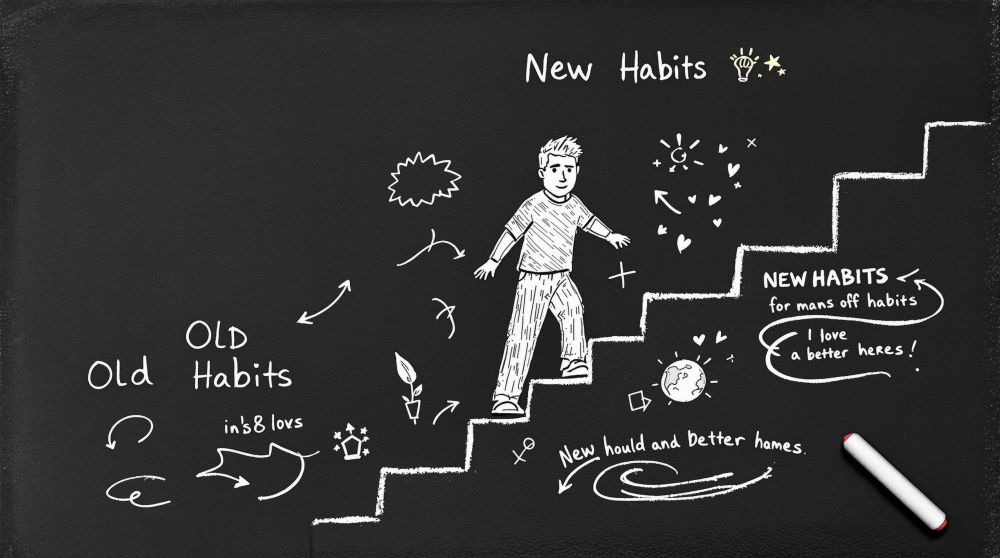 New Habits
OLD
Old Habits
in's & lovs
NEW HABITS
for mans off habits
I love
a better heres!
New hould and better hames.